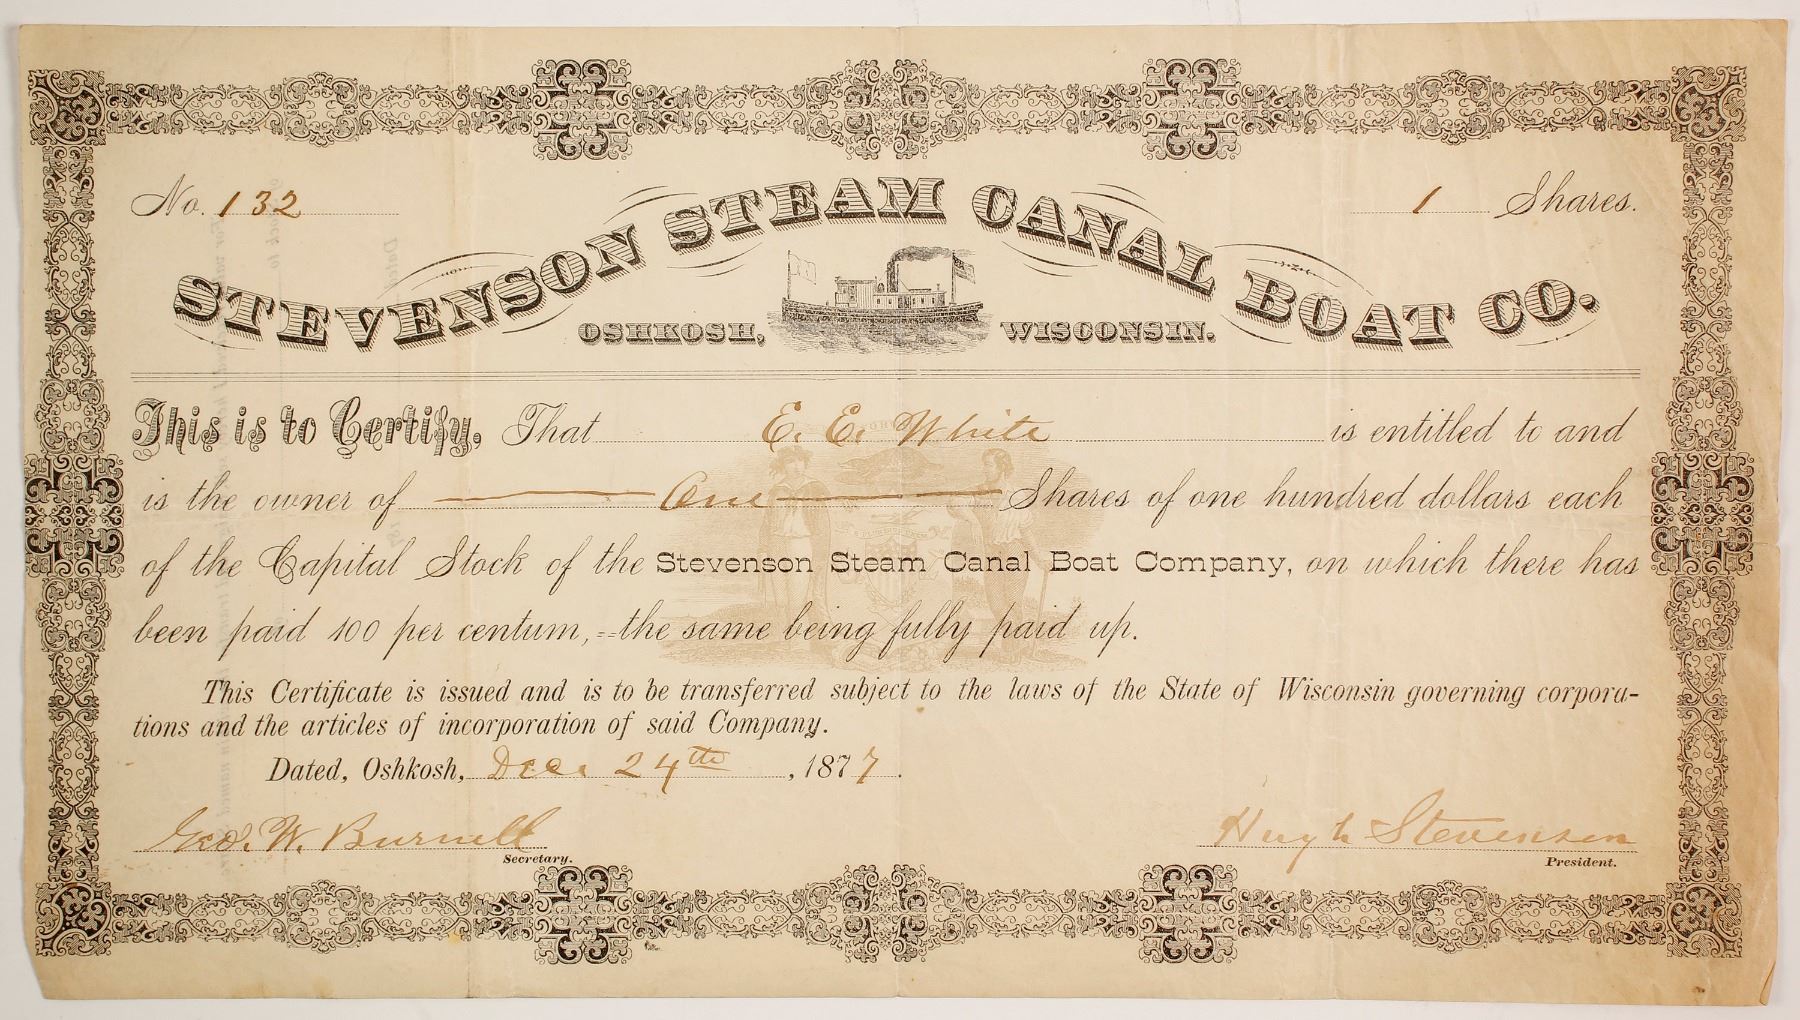 No. 132
1 Shares.
STEVENSON STEAM CANAL BOAT CO.
OSHKOSH, WISCONSIN.
This is to Certify, That E. E. White is entitled to and
is the owner of One Shares of one hundred dollars each
of the Capital Stock of the Stevenson Steam Canal Boat Company, on which there has
been paid 100 per centum,=the same being fully paid up.
This Certificate is issued and is to be transferred subject to the laws of the State of Wisconsin governing corpora-
tions and the articles of incorporation of said Company.
Dated, Oshkosh, Dec. 24th, 1877.
Geo. W. Burnell
Secretary.
Hugh Stevenson
President.